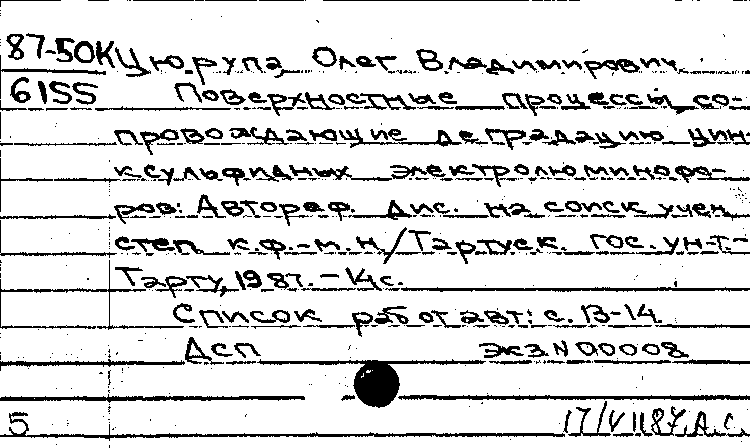 87-50К Цюрупа, Олег Владимирович
6155 Поверхностные процессы, со-
провождающие деградацию цин
ксульфидных электролюминофо-
ров: Автореф. дис. на соиск учен
степ. к.ф.-м.н./Тартуск. гос. ун-т.-
Тарту, 1987. - 14с.
Список работ авт: с. 13-14
ДСП экз N 00008
5 17/VII 87, А.С.